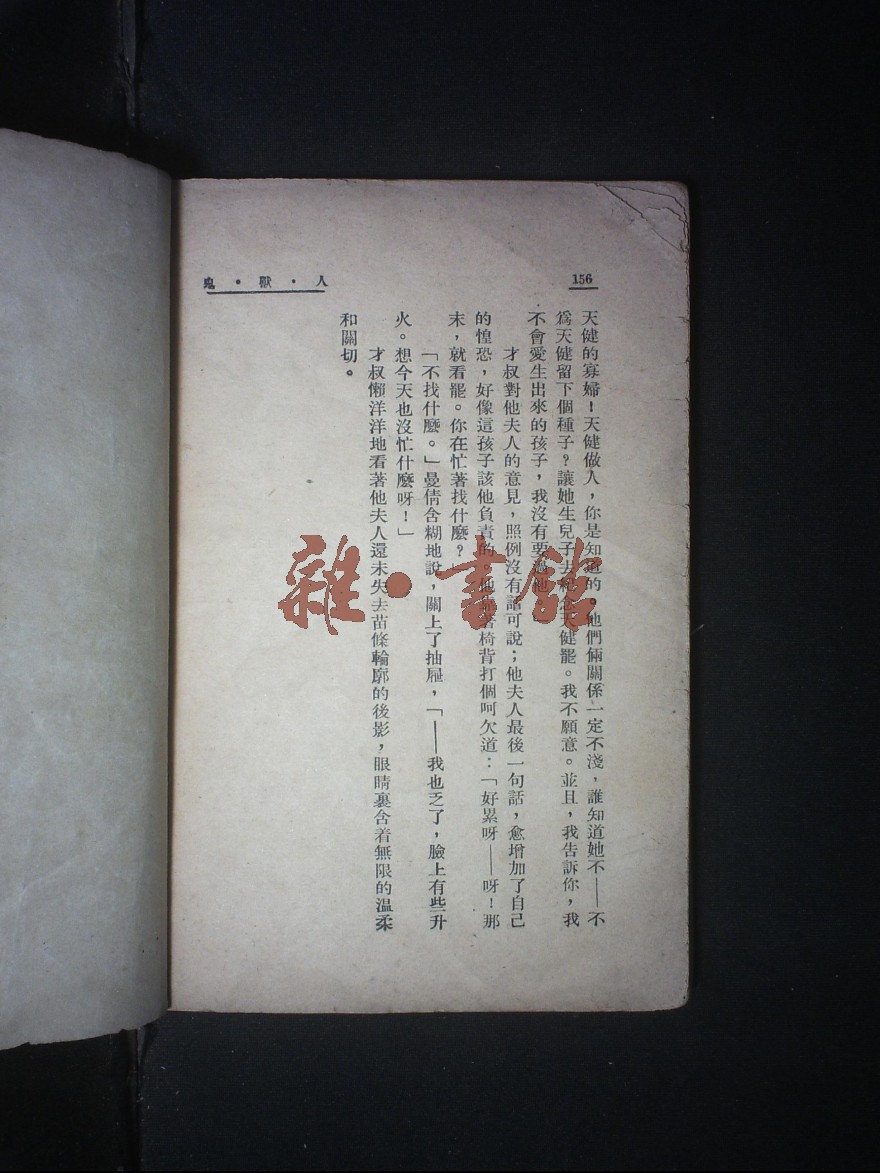 156
人·獸·鬼
天健的寡婦！天健做人，你是知道的。他們倆關係一定不淺，誰知道她不——不
爲天健留下個種子？讓她生兒子去紀念天健罷。我不願意。並且，我告訴你，我
不會愛生出來的孩子，我沒有要過他。」
才叔對他夫人的意見，照例沒有話可說；他夫人最後一句話，愈增加了自己
的惶恐，好像這孩子該他負責的。他靠着椅背打個呵欠道：「好累呀——呀！那
末，就看罷。你在忙著找什麼？」
「不找什麼。」曼倩含糊地說，關上了抽屜，「——我也乏了，臉上有些升
火。想今天也沒忙什麼呀！」
才叔懶洋洋地看著他夫人還未失去苗條輪廓的後影，眼睛裏含着無限的溫柔
和關切。
雜·書館